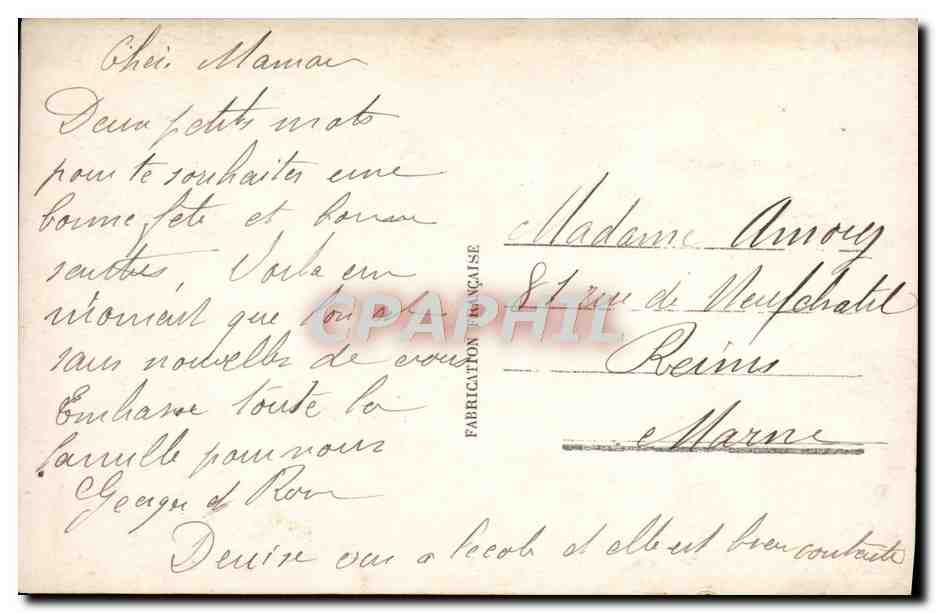 Maman
Deux petits mots
pour te souhaiter une
bonne fete et bonne
Voila un
moment que
sans nouvelles de vous
Embrasse toute la
famille pour nous
Georges et
Denise va a l'ecole et elle est bien contente
FABRICATION FRANÇAISE
Madame Amory
81 rue de Neufchatel
Reims
Marne
CPAPHIL